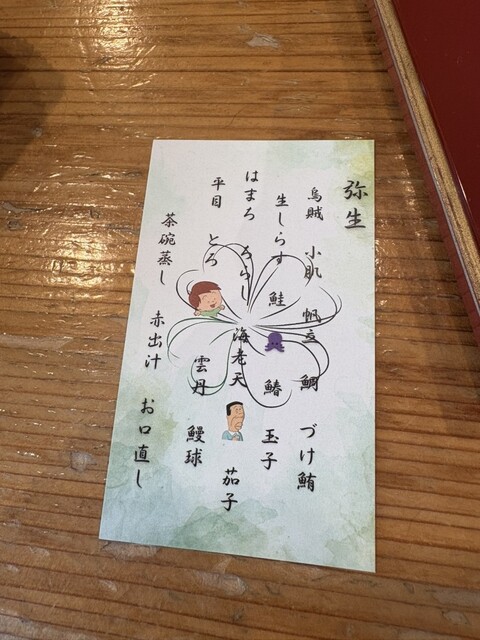 弥生
烏賊 小肌 帆立 鯛 づけ鮪
生しらす 鮭 鰆 玉子
はまち ちらし 海老天 茄子
平目 とろ 雲丹 鰻球
茶碗蒸し 赤出汁 お口直し